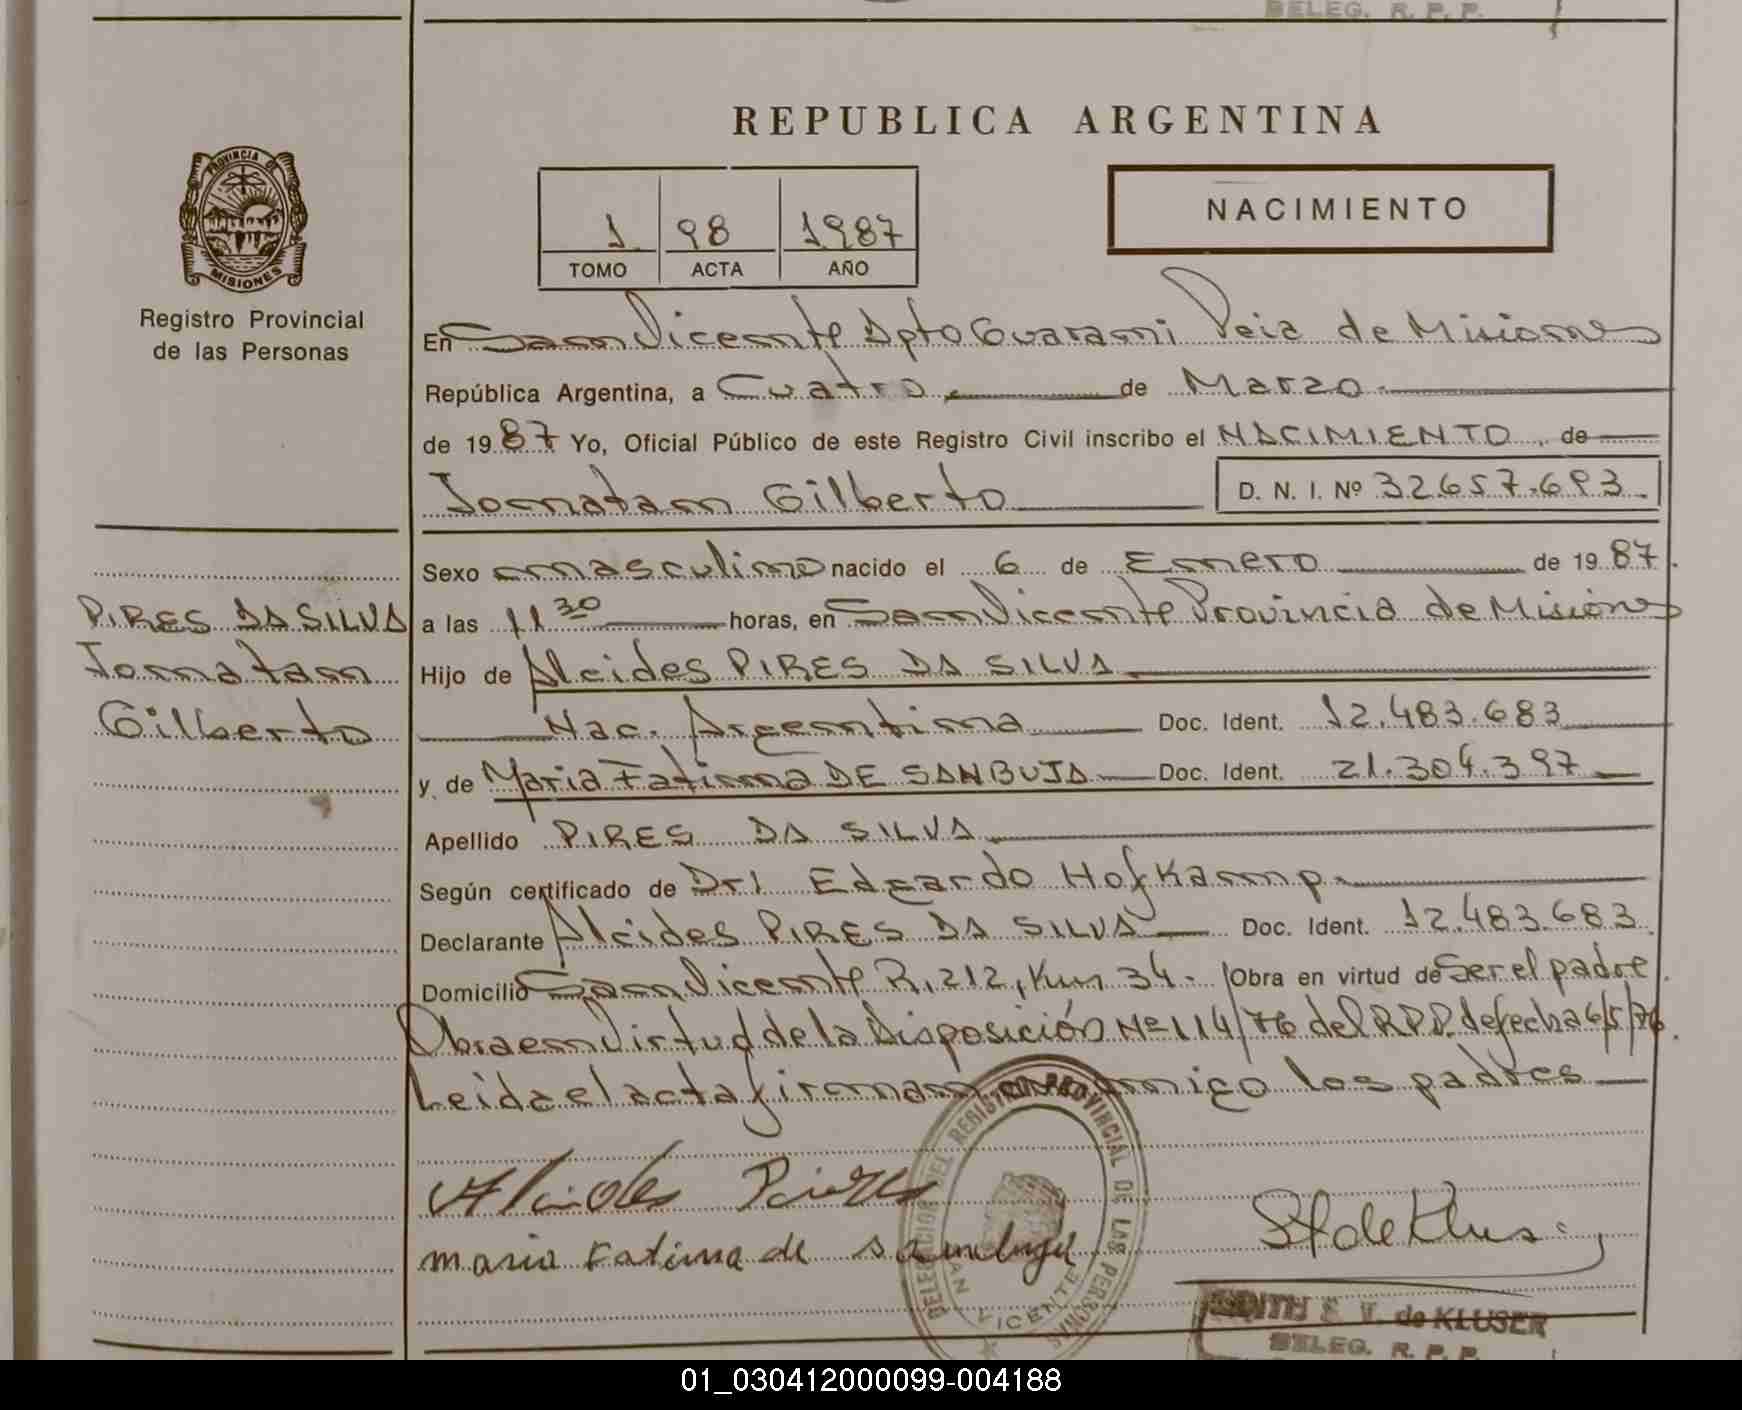 BELEG. R. P. P.
REPUBLICA ARGENTINA
PROVINCIA DE
MISIONES
Registro Provincial
de las Personas
1 98 1987
TOMO ACTA AÑO
NACIMIENTO
En San Vicente Dpto Guarani Pcia de Misiones
República Argentina, a Cuatro de Marzo
de 1987 Yo, Oficial Público de este Registro Civil inscribo el NACIMIENTO de
Jonatan Gilberto D. N. I. Nº 32.657.693
Sexo masculino nacido el 6 de Enero de 1987
PIRES DA SILVA
Jonatan
Gilberto
a las 11 30 horas, en San Vicente Provincia de Misiones
Hijo de Alcides PIRES DA SILVA
Nac. Argentina Doc. Ident. 12.483.683
y de Maria Fatima DE SANBUJA Doc. Ident. 21.304.397
Apellido PIRES DA SILVA
Según certificado de Dr. Edgardo Hofkamp.
Declarante Alcides PIRES DA SILVA Doc. Ident. 12.483.683
Domicilio San Vicente R. 212, Km 34 - Obra en virtud de Ser el padre
Obra en Virtud de la Disposición Nº 114/76 del R.P.P. de fecha 6/5/76
Leida el acta firman conmigo los padres
Alcides Pires
maria Fatima de
DELEGACION DEL REGISTRO PROVINCIAL DE LAS PERSONAS
SAN VICENTE
EDITH E. V. de KLUSER
BELEG. R. P. P.
01_030412000099-004188